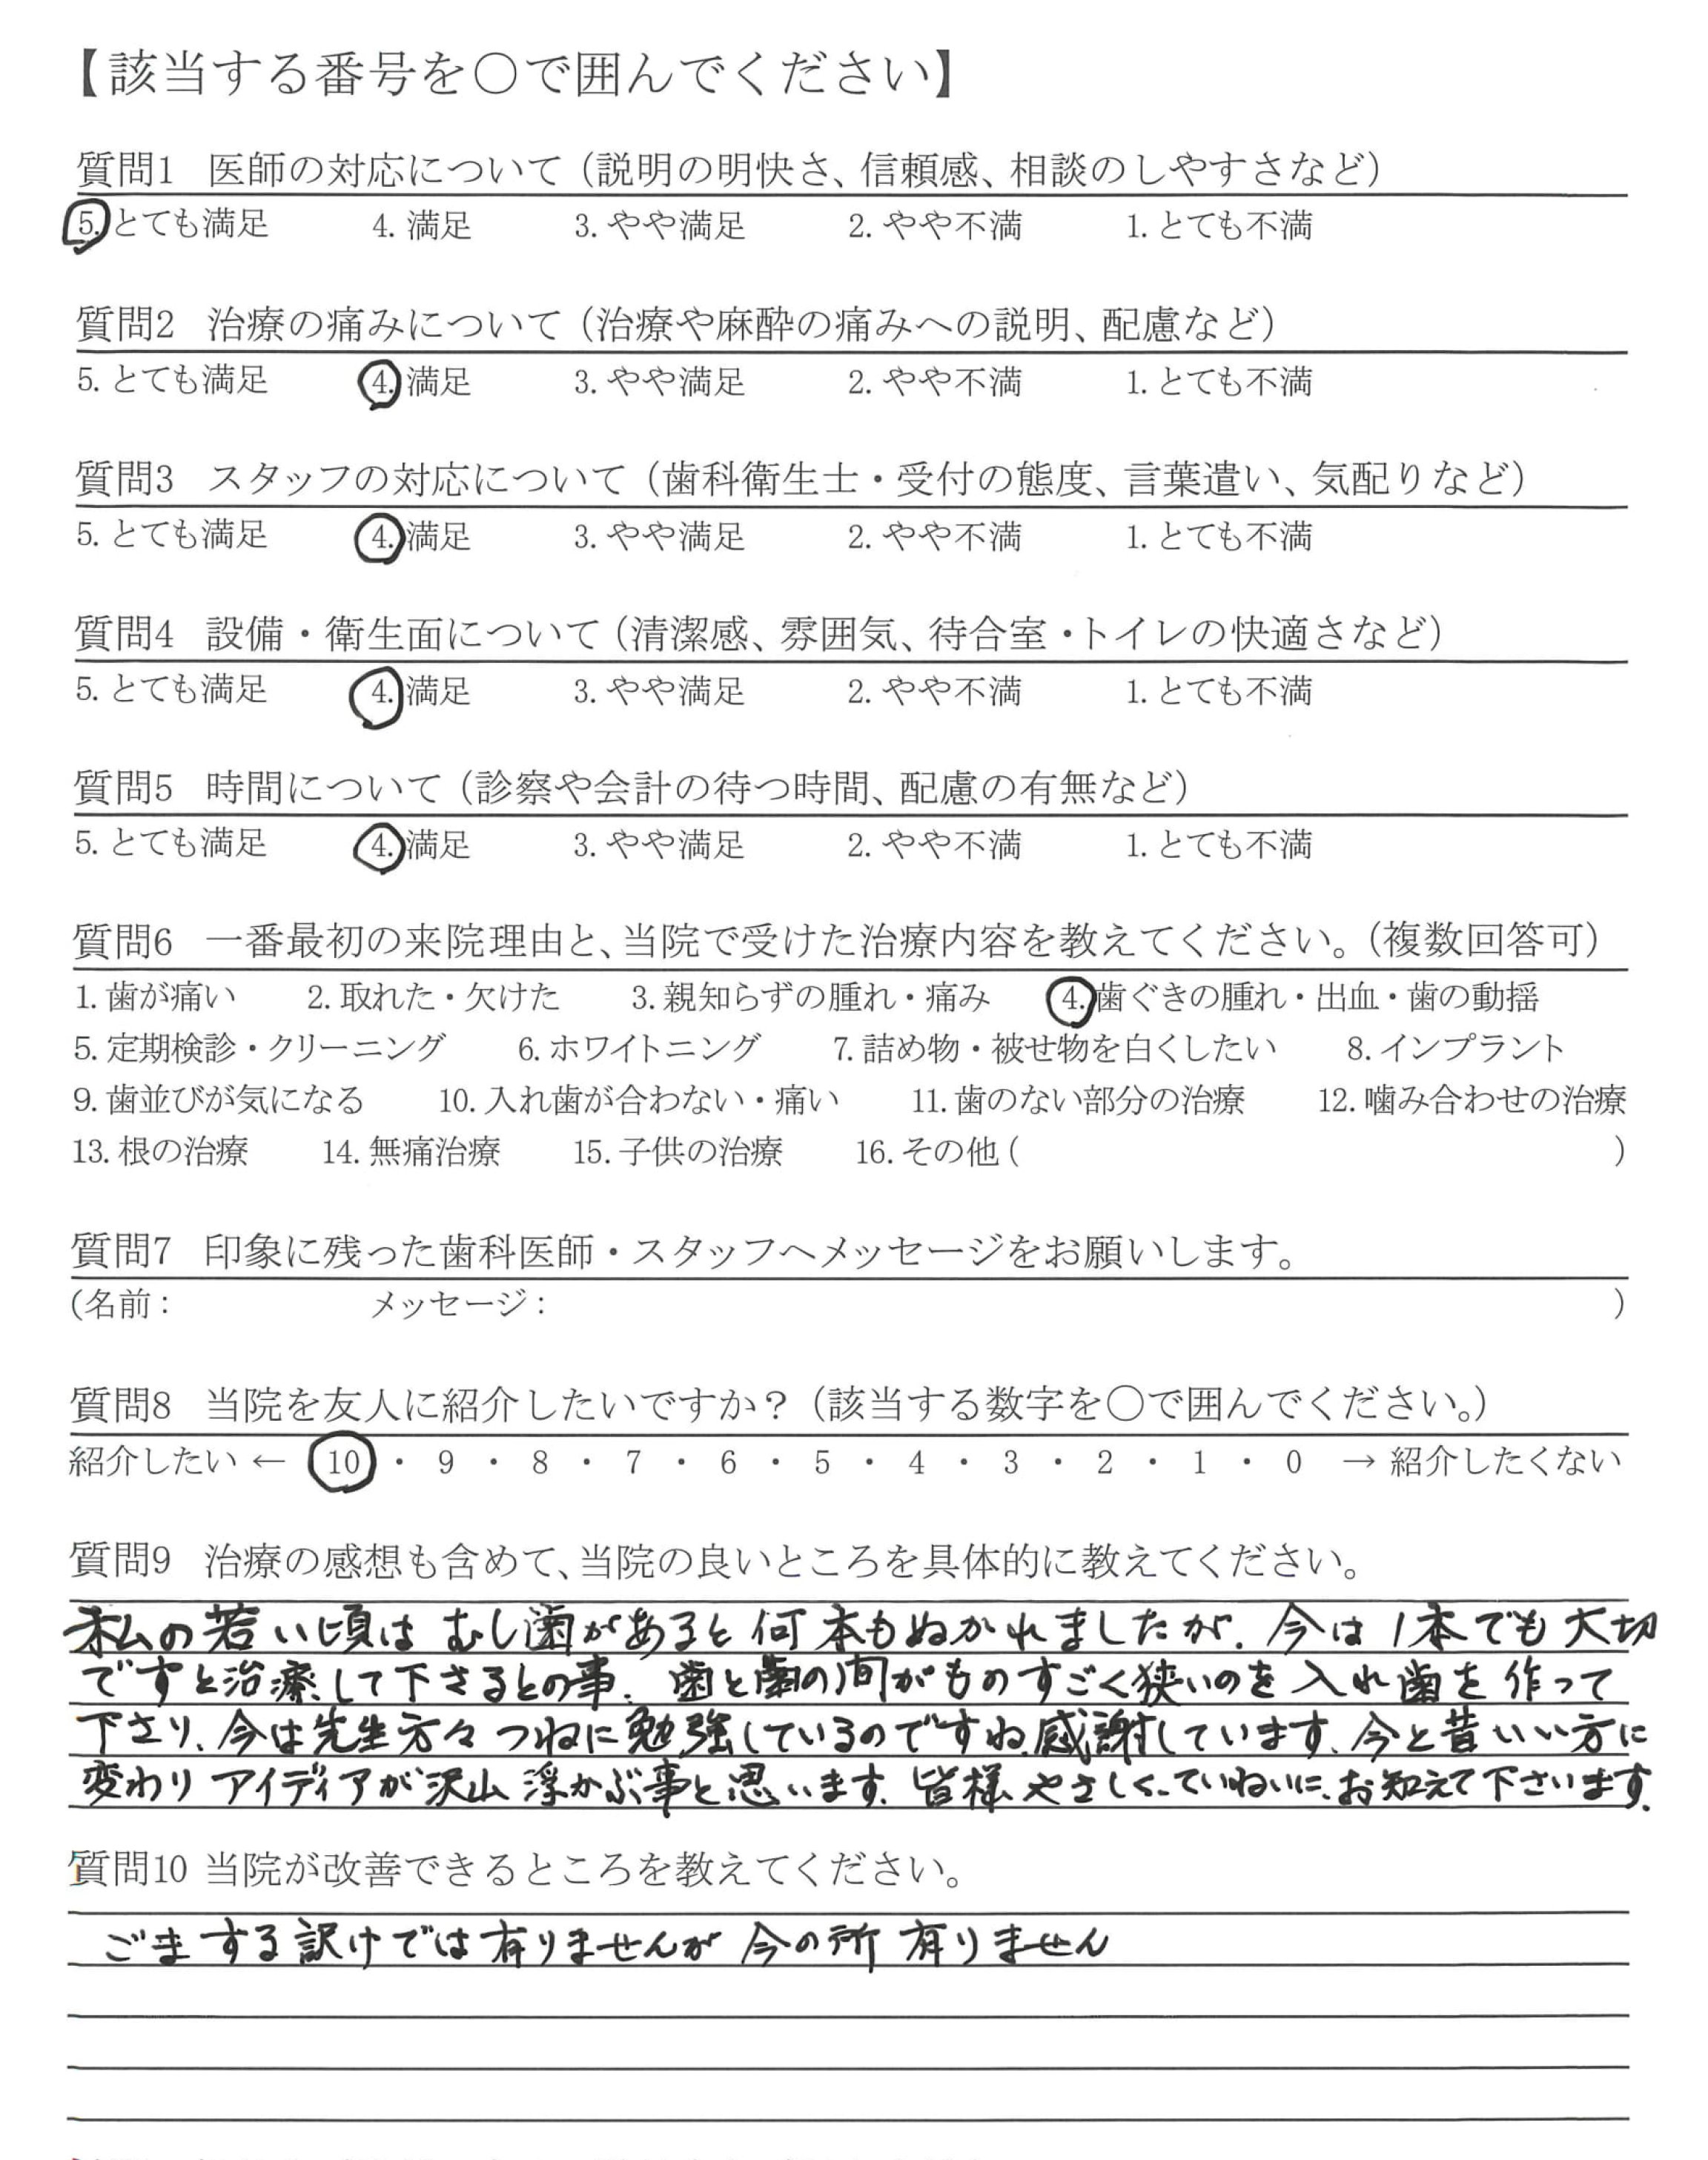 【該当する番号を○で囲んでください】
質問1 医師の対応について（説明の明快さ、信頼感、相談のしやすさなど）
5. とても満足 4. 満足 3. やや満足 2. やや不満 1. とても不満
質問2 治療の痛みについて（治療や麻酔の痛みへの説明、配慮など）
5. とても満足 4. 満足 3. やや満足 2. やや不満 1. とても不満
質問3 スタッフの対応について（歯科衛生士・受付の態度、言葉遣い、気配りなど）
5. とても満足 4. 満足 3. やや満足 2. やや不満 1. とても不満
質問4 設備・衛生面について（清潔感、雰囲気、待合室・トイレの快適さなど）
5. とても満足 4. 満足 3. やや満足 2. やや不満 1. とても不満
質問5 時間について（診察や会計の待つ時間、配慮の有無など）
5. とても満足 4. 満足 3. やや満足 2. やや不満 1. とても不満
質問6 一番最初の来院理由と、当院で受けた治療内容を教えてください。（複数回答可）
1. 歯が痛い 2. 取れた・欠けた 3. 親知らずの腫れ・痛み 4. 歯ぐきの腫れ・出血・歯の動揺
5. 定期検診・クリーニング 6. ホワイトニング 7. 詰め物・被せ物を白くしたい 8. インプラント
9. 歯並びが気になる 10. 入れ歯が合わない・痛い 11. 歯のない部分の治療 12. 噛み合わせの治療
13. 根の治療 14. 無痛治療 15. 子供の治療 16. その他 ( )
質問7 印象に残った歯科医師・スタッフへメッセージをお願いします。
(名前： メッセージ： )
質問8 当院を友人に紹介したいですか？（該当する数字を○で囲んでください。）
紹介したい ← 10 ・ 9 ・ 8 ・ 7 ・ 6 ・ 5 ・ 4 ・ 3 ・ 2 ・ 1 ・ 0 → 紹介したくない
質問9 治療の感想も含めて、当院の良いところを具体的に教えてください。
私の若い頃は むし歯があると 何本もぬかれましたが、今は1本でも大切
ですと治療して下さるとの事、歯と歯の間がものすごく狭いのを 入れ歯を 作って
下さり、今は先生方々 つねに勉強しているのですね、感謝しています。今と昔 いい方に
変わり アイディアが沢山 浮かぶ事と思います。皆様 やさしく、ていねいに、お知えて下さいます。
質問10 当院が改善できるところを教えてください。
ごまする訳けでは有りませんが 今の所 有りません